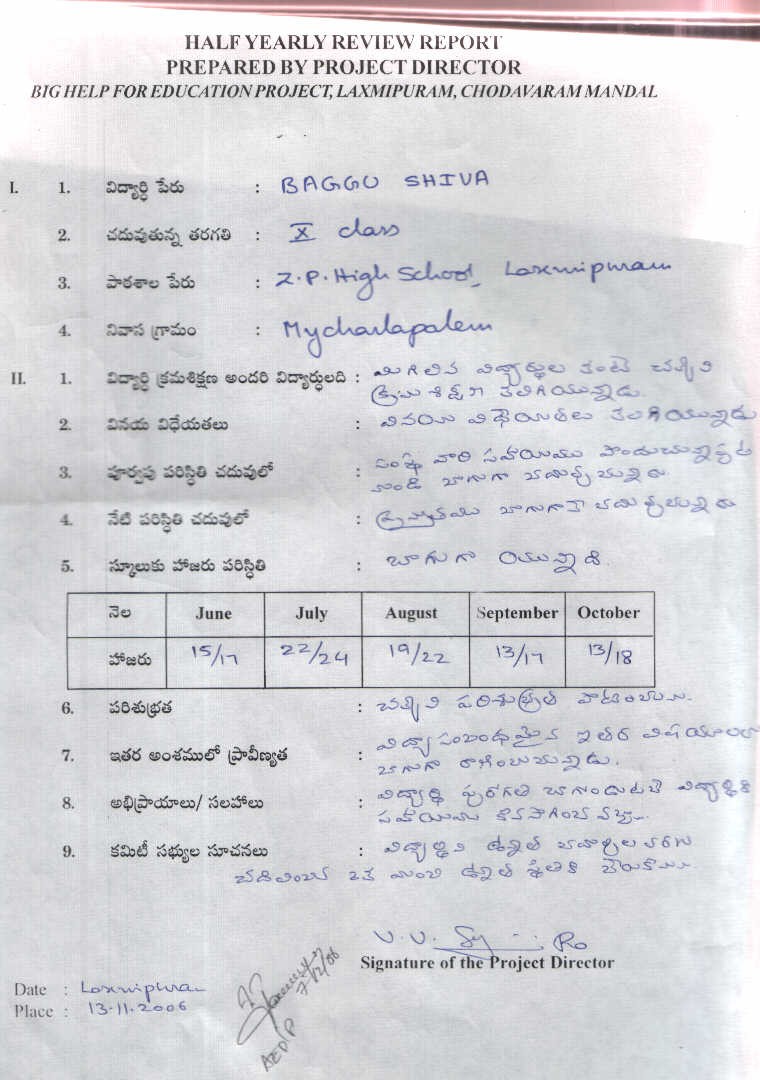 HALF YEARLY REVIEW REPORT
PREPARED BY PROJECT DIRECTOR
BIG HELP FOR EDUCATION PROJECT, LAXMIPURAM, CHODAVARAM MANDAL
I. 1. విద్యార్థి పేరు : BAGGU SHIVA
2. చదువుతున్న తరగతి : X class
3. పాఠశాల పేరు : Z.P. High School, Laxmipuram
4. నివాస గ్రామం : Mycharlapalem
II. 1. విద్యార్థి క్రమశిక్షణ అందరి విద్యార్థులది : మిగిలిన విద్యార్థుల కంటె చక్కని
క్రమశిక్షణ కలిగియున్నాడు.
2. వినయ విధేయతలు : వినయ విధేయతలు కలిగియున్నాడు
3. పూర్వపు పరిస్థితి చదువులో : సంస్థ వారి సహాయము పొందుచున్నప్పట
నుండి బాగుగా చదువుచున్నాడు
4. నేటి పరిస్థితి చదువులో : ప్రస్తుతము బాగుగానే చదువుచున్నాడు
5. స్కూలుకు హాజరు పరిస్థితి : బాగుగా యున్నది.
నెల June July August September October
హాజరు 15/17 22/24 19/22 13/17 13/18
6. పరిశుభ్రత : చక్కని పరిశుభ్రత పాటించును.
7. ఇతర అంశములో ప్రావీణ్యత : విద్యా సంబంధమైన ఇతర విషయాలలో
బాగుగా రాణించుచున్నాడు.
8. అభిప్రాయాలు/ సలహాలు : విద్యార్థి పురోగతి బాగుండుటచే విద్యార్థికి
సహాయము కొనసాగించవచ్చు.
9. కమిటీ సభ్యుల సూచనలు : విద్యార్థిని ఉన్నత చదువుల వరకు
చదివించి ఒక మంచి ఉన్నత స్థితికి
V.V.
Signature of the Project Director
Date : Laxmipuram
Place : 13-11-2006
7/12/06
AEDP